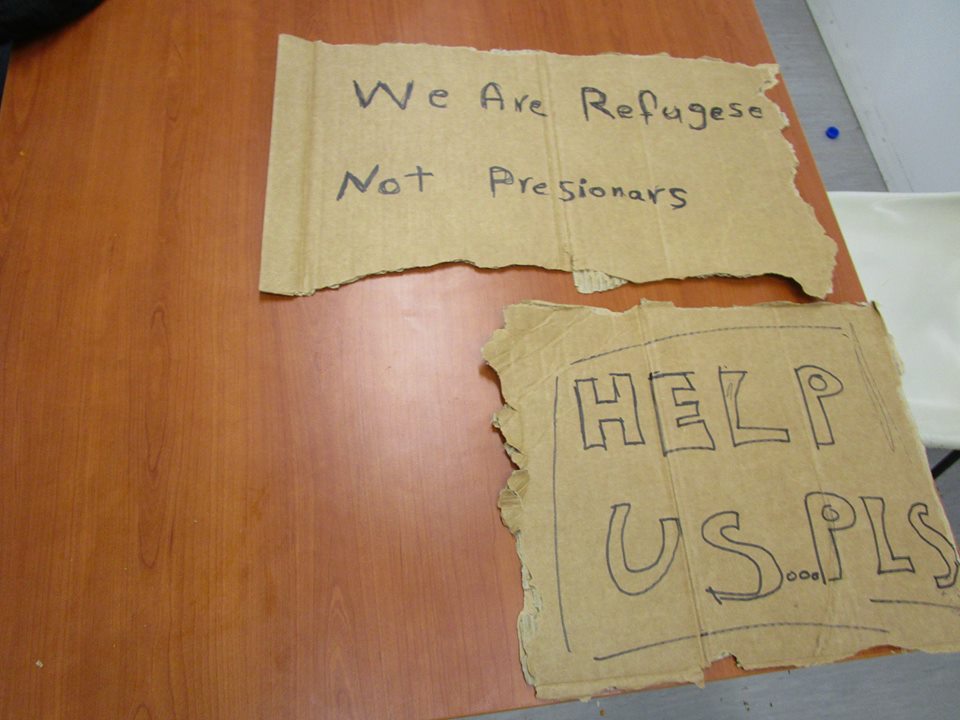 We Are Refugese
Not Presionars
HELP
US...PLS